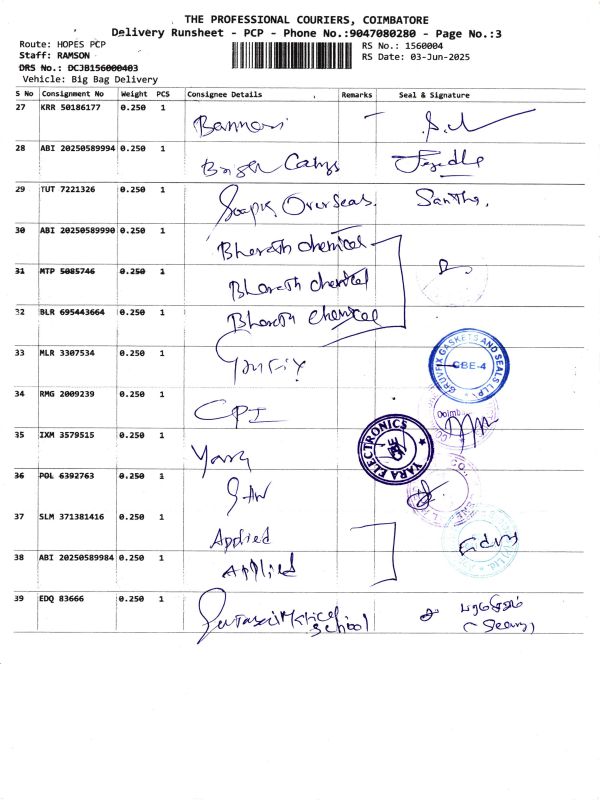 THE PROFESSIONAL COURIERS, COIMBATORE
Delivery Runsheet - PCP - Phone No.:9047080280 - Page No.:3
Route: HOPES PCP RS No.: 1560004
Staff: RAMSON RS Date: 03-Jun-2025
DRS No.: DCJB156000403
Vehicle: Big Bag Delivery
S No Consignment No Weight PCS Consignee Details Remarks Seal & Signature
27 KRR 50186177 0.250 1 Bannari
28 ABI 20250589994 0.250 1
29 TUT 7221326 0.250 1 Overseas. Santhe.
30 ABI 20250589990 0.250 1 Bharath chemical
31 MTP 5085746 0.250 1 Bharath chemical
32 BLR 695443664 0.250 1 Bharath chemical
33 MLR 3307534 0.250 1 GRUVFIX GASKETS AND SEALS LLP CBE-4
34 RMG 2009239 0.250 1 CPI
35 IXM 3579515 0.250 1 Yara YARA ELECTRONICS
36 POL 6392763 0.250 1
37 SLM 371381416 0.250 1 Applied
38 ABI 20250589984 0.250 1 Applied
39 EDQ 83666 0.250 1 School